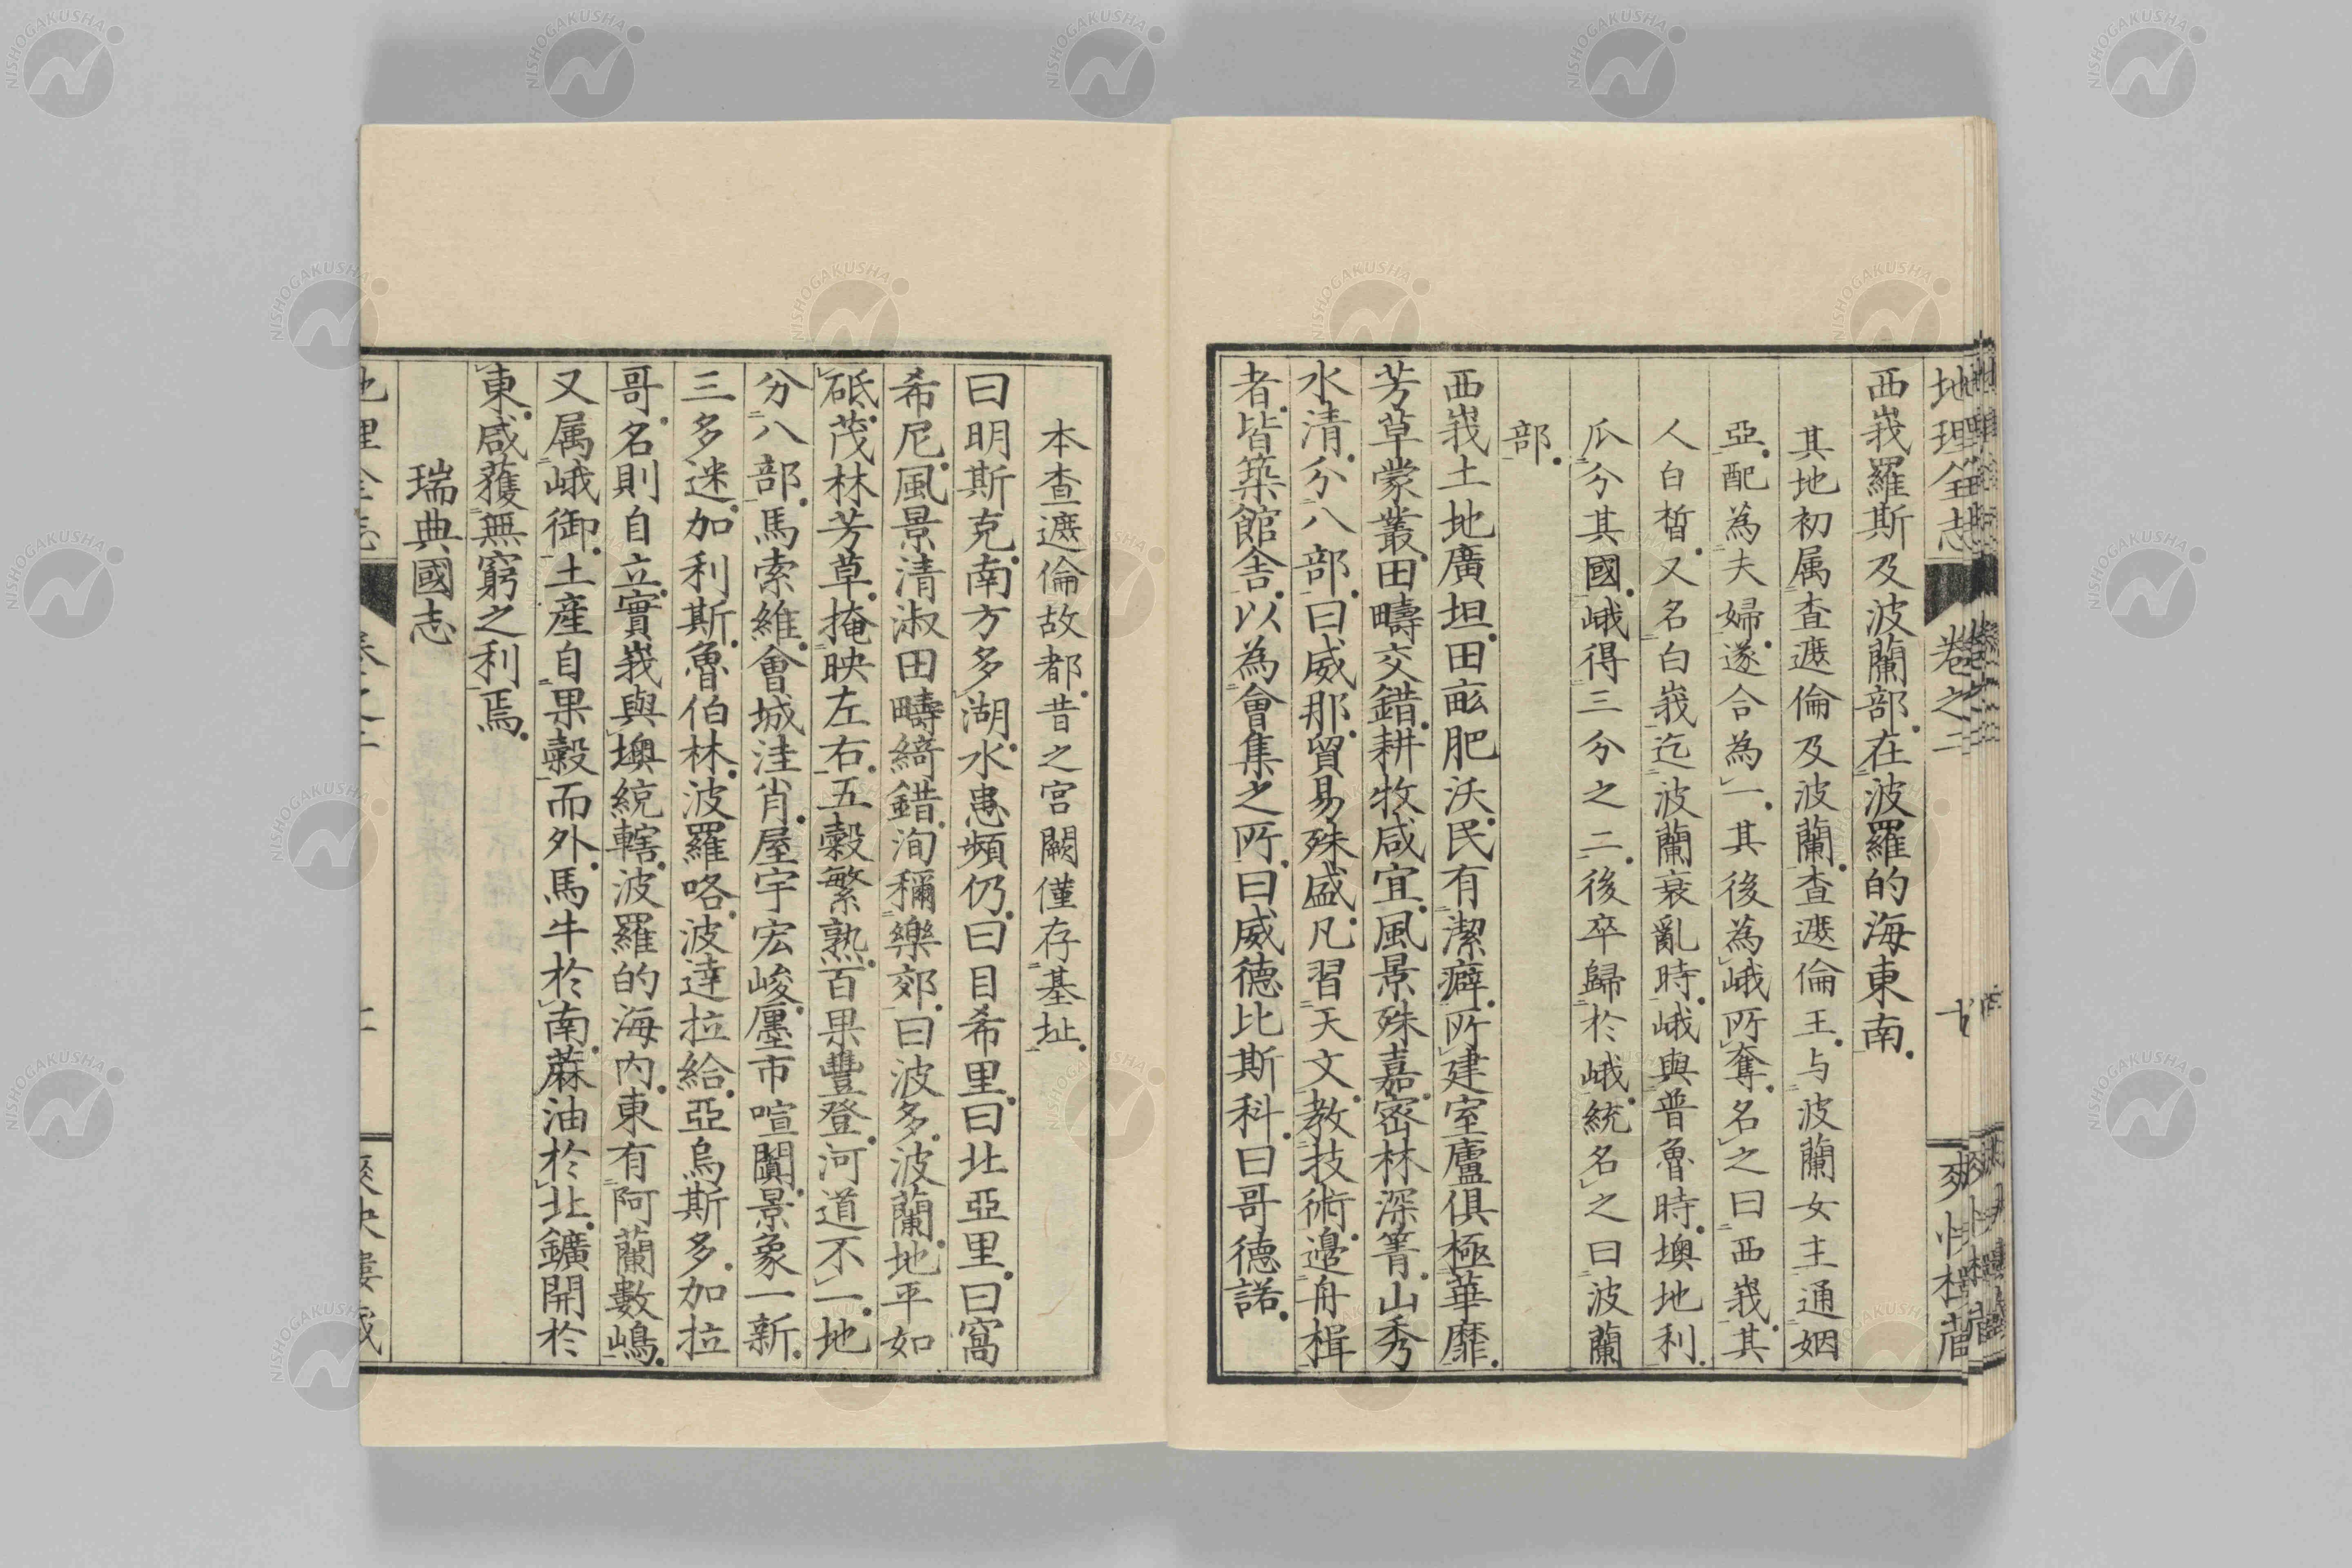 地理全志 卷之二
西峩羅斯及波蘭部在波羅的海東南
其地初属查遮倫及波蘭查遮倫王与波蘭女主通姻
亞配為夫婦遂合為一其後為峨所奪名之曰西峩其
人白晳又名白峩迄波蘭衰亂時峨與普魯時墺地利
瓜分其國峨得三分之二後卒歸於峨統名之曰波蘭
部
西峩土地廣坦田畝肥沃民有潔癖所建室廬俱極華靡
芳草蒙叢田疇交錯耕牧咸宜風景殊嘉密林深箐山秀
水清分八部曰威那貿易殊盛凡習天文教技術邉舟楫
者皆築館舎以為會集之所曰威德比斯科曰哥德諾
本查遮倫故都昔之宮闕僅存基址
曰明斯克南方多湖水患頻仍曰目希里曰北亞里曰窩
希尼風景清淑田疇綺錯洵稱樂郊曰波多波蘭地平如
砥茂林芳草掩映左右五穀繁熟百果豐登河道不一地
分八部馬索維會城洼肖屋宇宏峻廛市喧闐景象一新
三多迷加利斯魯伯林波羅咯波達拉給亞烏斯多加拉
哥名則自立實峩與墺統轄波羅的海内東有阿蘭數嶋
又属峨御土産自果穀而外馬牛於南蔴油於北鑛開於
東咸獲無窮之利焉
瑞典國志